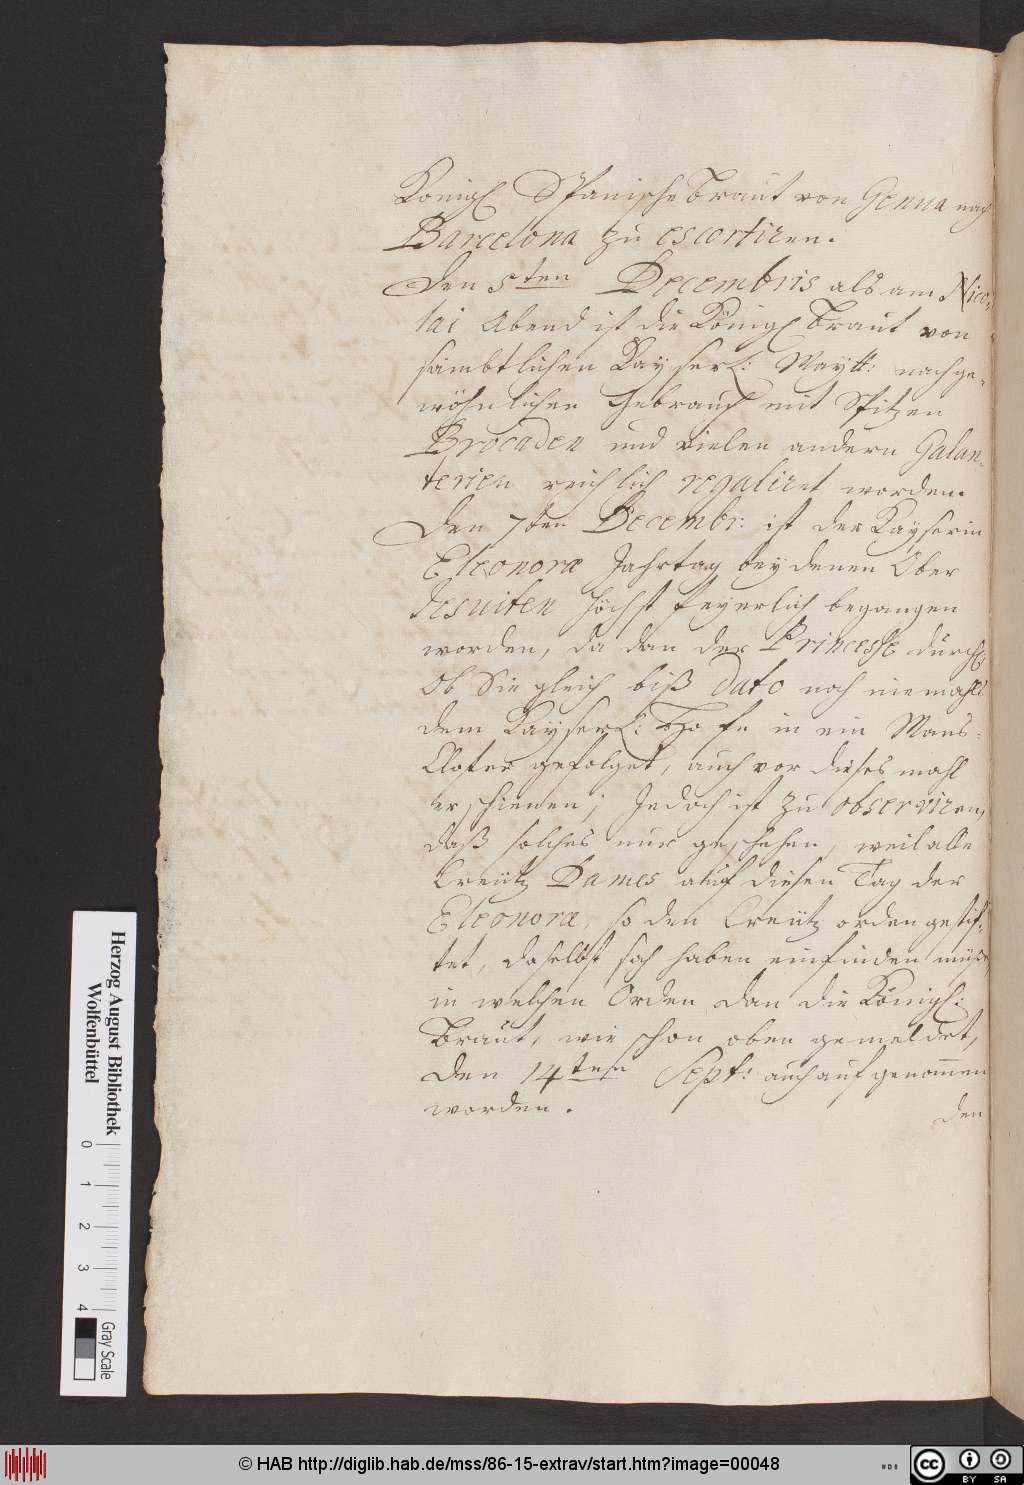 Königl Spanische Braut von Genua nach
Barcelona zu escortiren.
Den 5ten Decembris als am Nico-
lai Abend ist die Königl Braut von
sämbtlichen Kayserl: Maytt: nach ge-
wöhnlichen Gebrauch mit Spitzen
Brocaden und vielen andern Galan-
terien reichlich regaliret worden.
Den 7ten Decembr: ist der Kayserin
Eleonoræ Jahrtag bey denen Ober
Jesuiten höchst feyerlich begangen
worden, da dan der Princesse durchl
Ob Sie gleich biß dato noch niemahls
dem Kayserl: Hofe in ein Mans-
Closter gefolget, auch vor dieses mahl
erschienen; Jedoch ist zu observiren,
daß solches nur geschehen, weil alle
Creütz Dames auf diesen Tag der
Eleonoræ, so den Creütz orden gestif-
tet, daselbst sich haben einfinden müßen
in welchen Orden dan die Königl:
Braut, wie schon oben gemeldet,
den 14ten Sept: auch aufgenommen
worden.
den
Herzog August Bibliothek
Wolfenbüttel
0 1 2 3 4
Gray Scale
© HAB http://diglib.hab.de/mss/86-15-extrav/start.htm?image=00048
cc BY SA